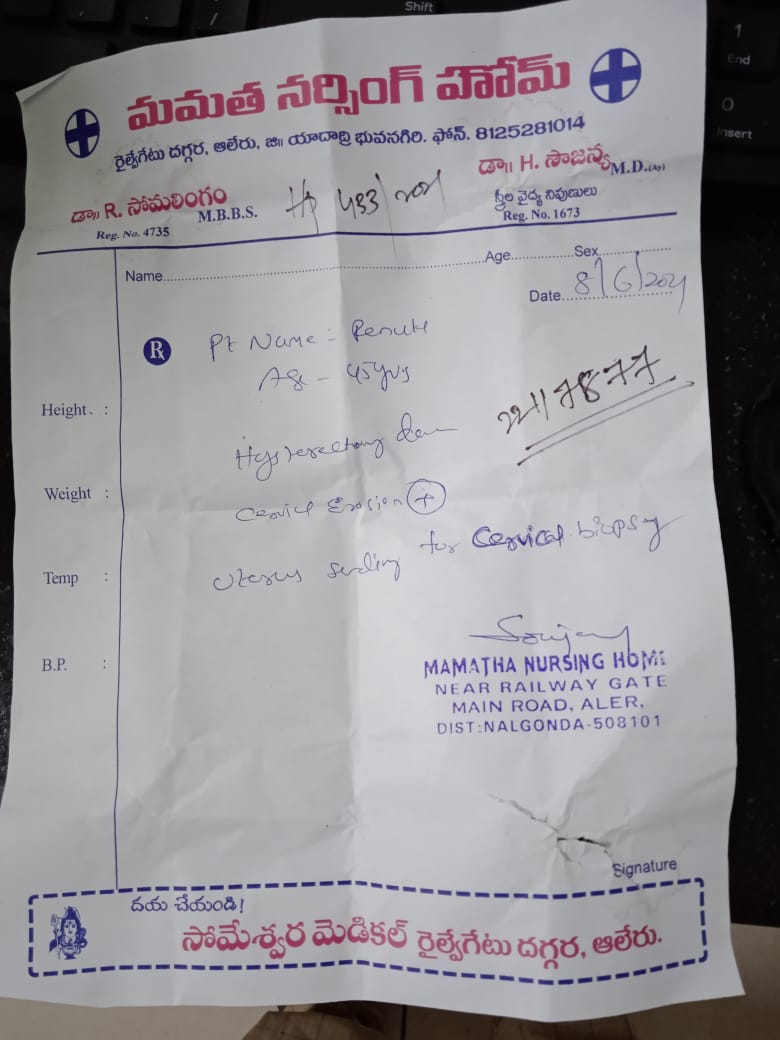 Shift
1
End
0
Insert
మమత నర్సింగ్ హోమ్
రైల్వేగేటు దగ్గర, ఆలేరు, జి॥ యాదాద్రి భువనగిరి. ఫోన్. 8125281014
డా॥ R. సోమలింగం M.B.B.S.
Reg. No. 4735
433/2021
డా॥ H. సౌజన్య M.D.(Ay)
స్త్రీల వైద్య నిపుణులు
Reg. No. 1673
Name Age Sex
Date 8/6/2021
Rx
Pt Name :-
Age - 45yrs
22117877
Height :
Weight :
Temp :
B.P. :
Erosion +
Uterus sending for Cervical biopsy
MAMATHA NURSING HOME
NEAR RAILWAY GATE
MAIN ROAD, ALER,
DIST:NALGONDA-508101
Signature
దయ చేయండి!
సోమేశ్వర మెడికల్ రైల్వేగేటు దగ్గర, ఆలేరు.